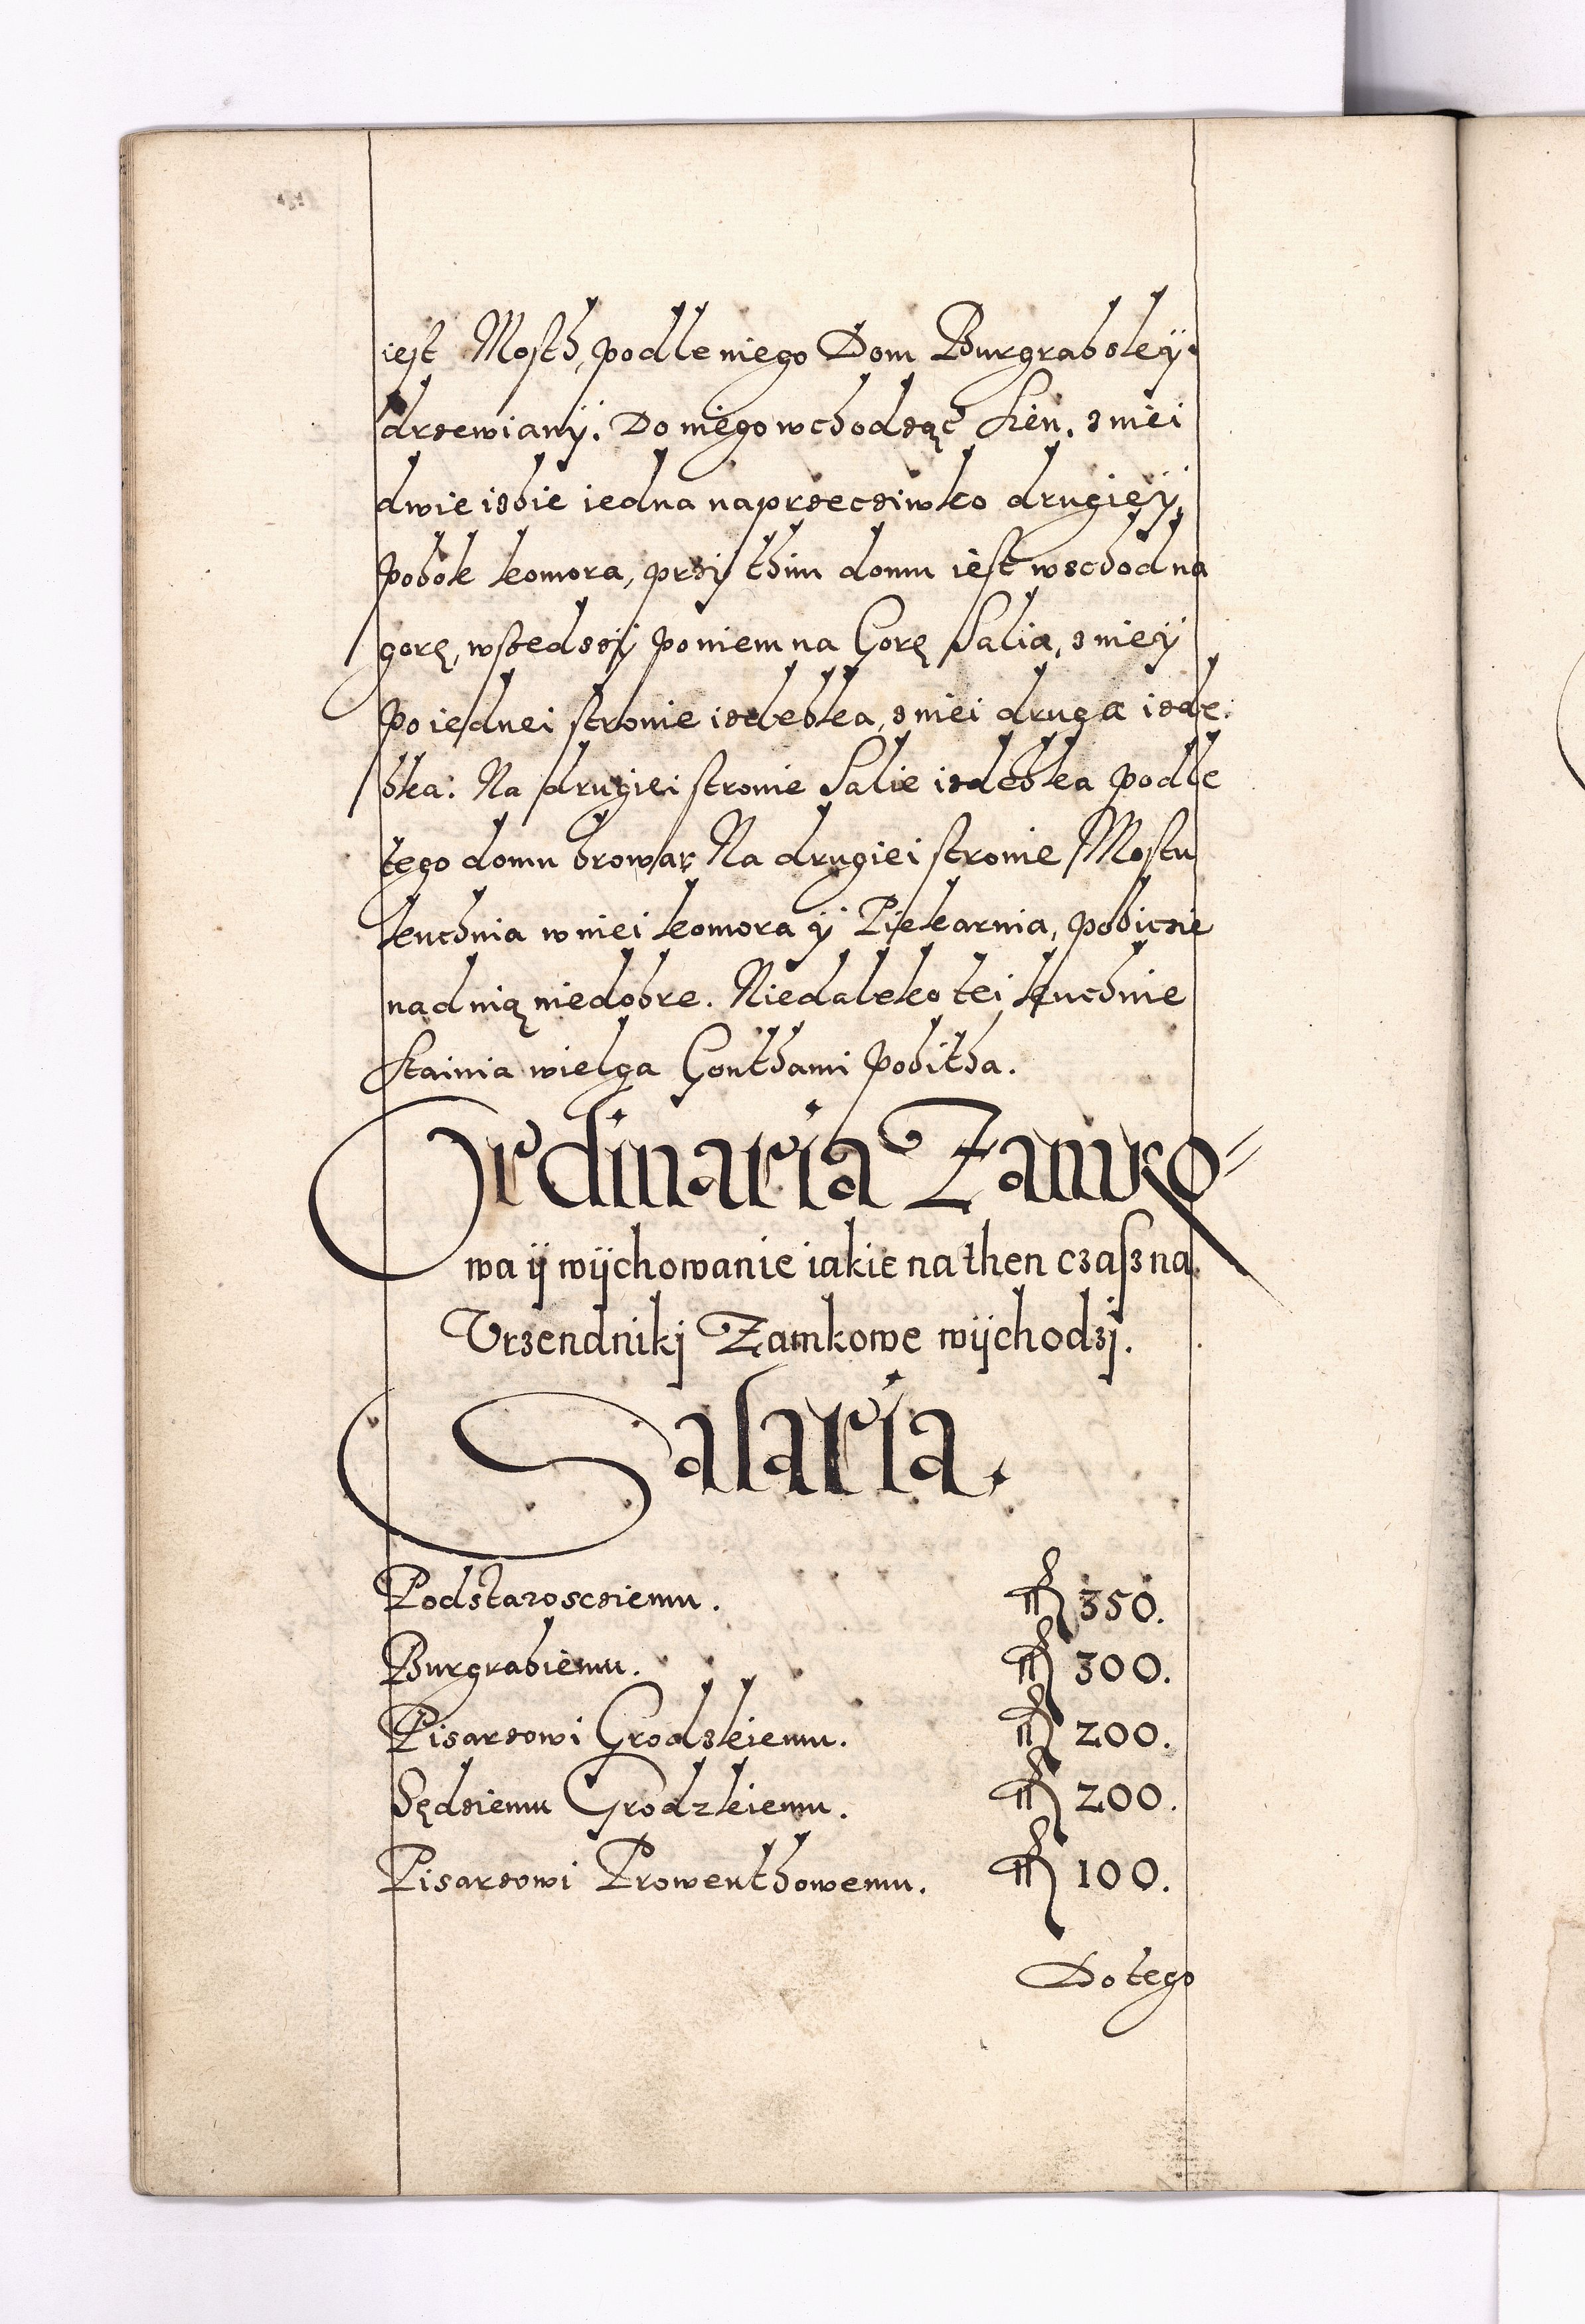 iest Mosth, podle niego Dom Burgrabskÿ.
drzewianÿ. Do niego wchodząc Sien, z niei
dwie izbie iedna naprzecziwko drugieÿ,
pobok komora, przÿ thim domu iest wschod na
gorę, wszedszÿ po niem na Gorę Salia, z nieÿ
po iednei stronie izdebka, z niei druga izde:
bka: Na drugiei stronie Salie izdebka podle
tego domu browar. Na drugiei stronie Mostu
kuchnia w niei komora ÿ Piekarnia, pobiczie
nad nią niedobre. Niedaleko tei kuchnie
stainia wielga Gonthami pobitha.
Ordinaria Zamko=
wa ÿ wÿchowanie iakie na then czassz na
Vrzendnikj Zamkowe wÿchodzj.
Salaria.
Podstarosciemu. fl 350.
Burgrabiemu. fl 300.
Pisarzowi Grodzkiemu. fl 200.
Sędziemu Grodzkiemu. fl 200.
Pisarzowi Prowenthowemu. fl 100.
Do tego